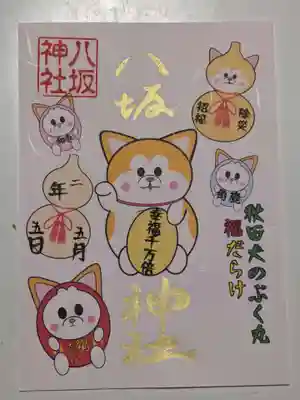 八坂
神社
八坂
神社
招福
除災
二年
五月
五日
幸福千万倍
秋田犬のぶく丸
福だらけ